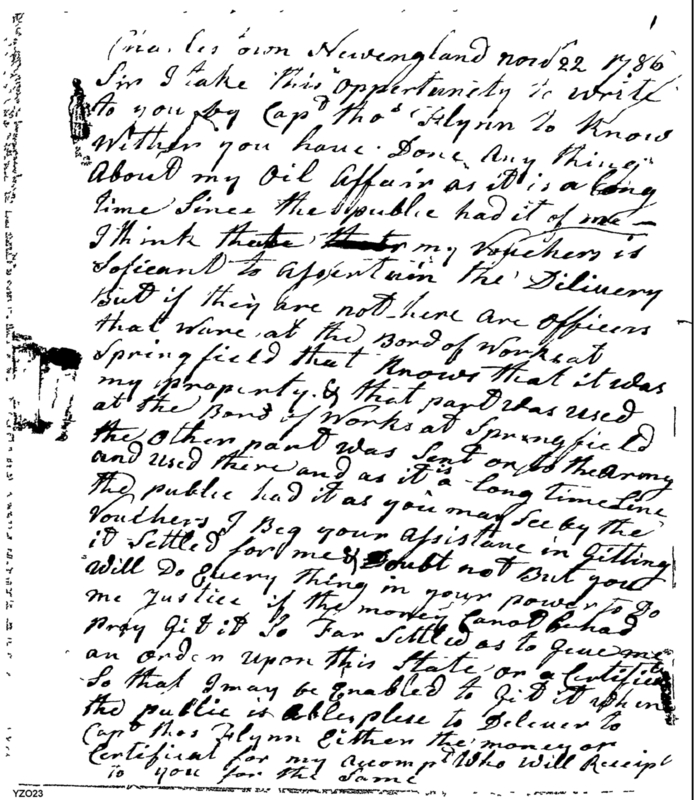 1
Charlestown Newengland novr 22 1786
Sir I take this opportunity to write
to you by Capt thos Flynn to Know
Wither you have Done Any thing
About my Oil Affair as it is a long
time Since the public had it of me—
I think my Vouchers is
Soficant to assertain the Dilivery
But if they are not here are officers
that Ware at the Bord of Works at
Springfield that Knows that it was
my property. & that part was used
at the Bord of Works at Springfield
the Other part was Sent on to the Army
and used there and as it is a long time Sine
the public had it as you may See by the
Vouchers I Beg your Assistanc in Gitting
it Settled for me & Doubt not But you
Will Do Every thing in your power to Do
me Justice if the money Canot be had
pray Git it So Far Settled as to Give me
an Order upon this State or a Certificate
So that I may be Enabled to Git it when
the public is Able plese to Deliver to
Capt thos Flynn Either the money or
Certificat for my accompt Who Will Receipt
to you for the Same
YZO23